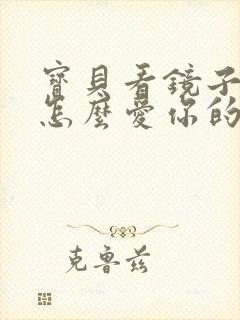 寶貝看鏡子
怎麼愛你的
克魯茲